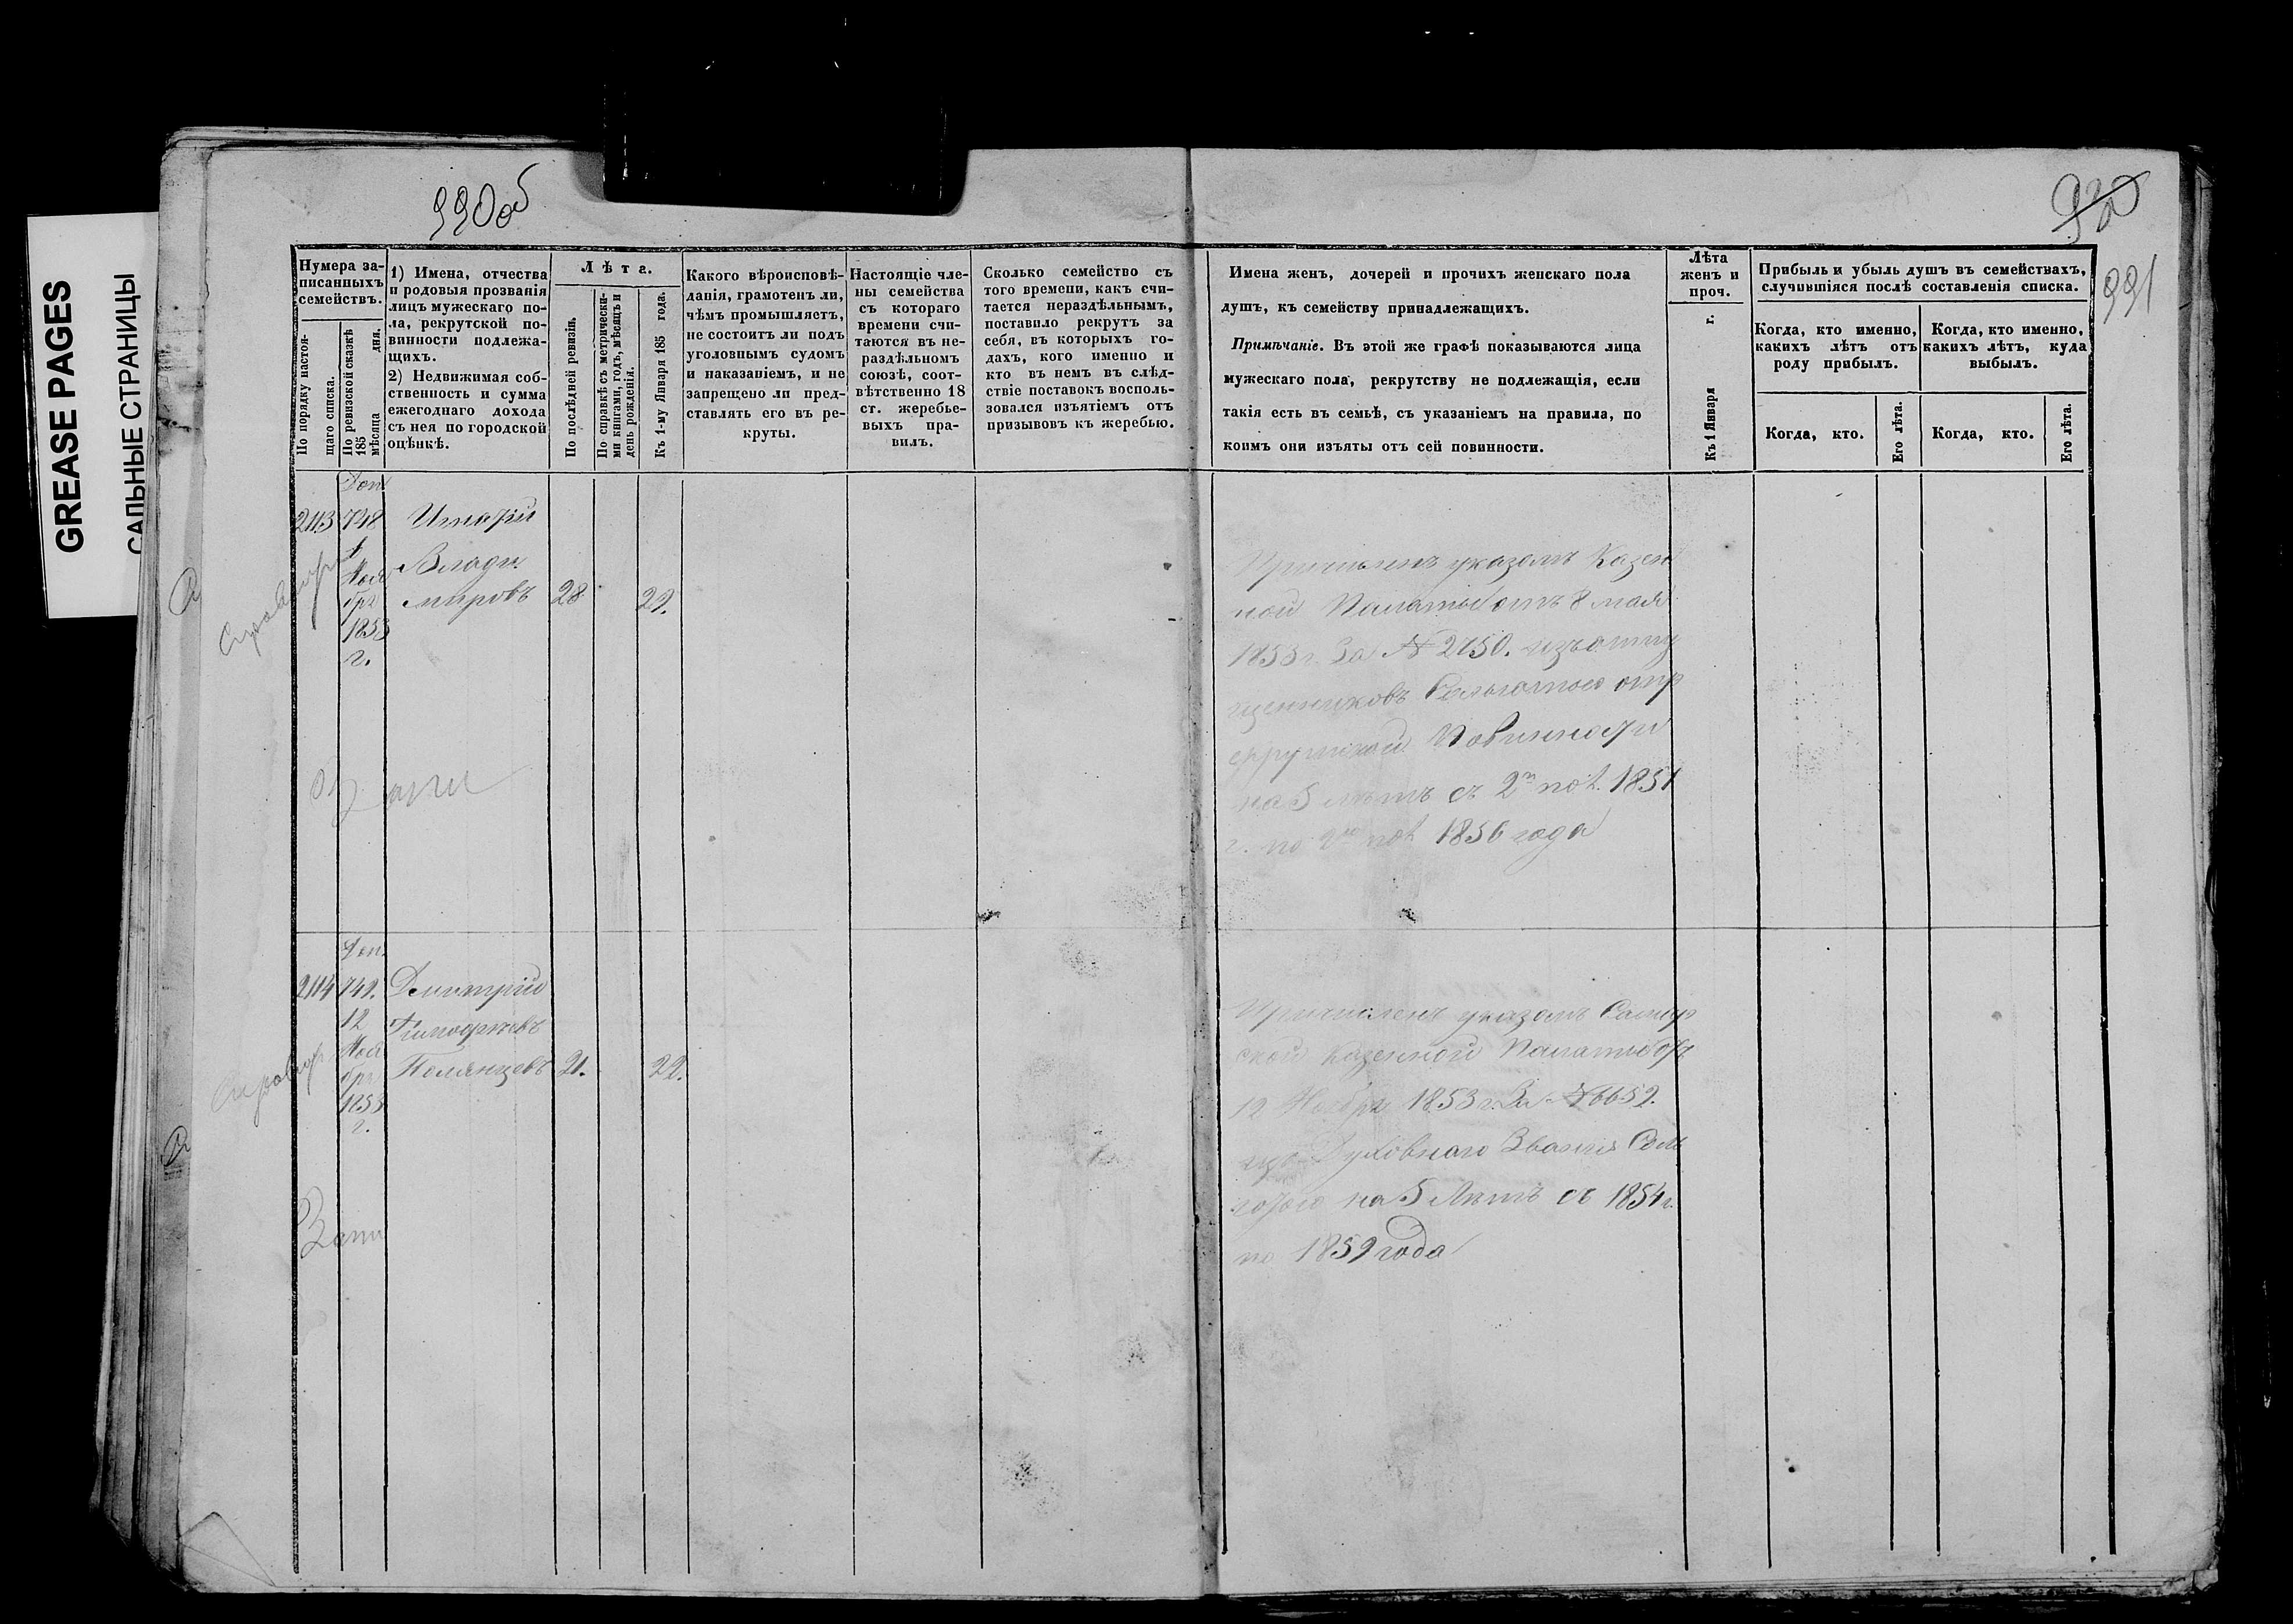 GREASE PAGES
САЛЬНЫЕ СТРАНИЦЫ
990об
991
Нумера за-
писанныхъ
семействъ.
По порядку настоя-
щаго списка.
По ревизской сказкѣ
185 дня.
мѣсяца
1) Имена, отчества
и родовыя прозванія
лицъ мужескаго по-
ла, рекрутской по-
винности подлежа-
щихъ.
2) Недвижимая соб-
ственность и сумма
ежегоднаго дохода
съ нея по городской
оцѣнкѣ.
Лѣта.
По послѣдней ревизіи.
По справкѣ съ метрически-
ми книгами, годъ, мѣсяцъ и
день рожденія.
Къ 1-му Января 185 года.
Какого вѣроисповѣ-
данія, грамотенъ ли,
чѣмъ промышляетъ,
не состоитъ ли подъ
уголовнымъ судомъ
и наказаніемъ, и не
запрещено ли пред-
ставлять его въ ре-
круты.
Настоящіе чле-
ны семейства
съ котораго
времени счи-
таются въ не-
раздѣльномъ
союзѣ, соот-
вѣтственно 18
ст. жеребье-
выхъ пра-
вилъ.
Сколько семейство съ
того времени, какъ счи-
тается нераздѣльнымъ,
поставило рекрутъ за
себя, въ которыхъ го-
дахъ, кого именно и
кто въ немъ въ слѣд-
ствіе поставокъ восполь-
зовался изъятіемъ отъ
призывовъ къ жеребью.
Имена женъ, дочерей и прочихъ женскаго пола
душъ, къ семейству принадлежащихъ.
Примѣчаніе. Въ этой же графѣ показываются лица
мужескаго пола, рекрутству не подлежащія, если
такія есть въ семьѣ, съ указаніемъ на правила, по
коимъ они изъяты отъ сей повинности.
Лѣта
женъ и
проч.
Къ 1 Января г.
Прибыль и убыль душъ въ семействахъ,
случившіяся послѣ составленія списка.
Когда, кто именно,
какихъ лѣтъ отъ
роду прибылъ.
Когда, кто именно,
какихъ лѣтъ, куда
выбылъ.
Когда, кто.
Его лѣта.
Когда, кто.
Его лѣта.
Доп.
2113 748 Игнатій
Влади
мировъ 28 29.
Ноя
бря
1853
г.
Причисленъ указомъ Казен
ной Палаты отъ 8 мая
1853 г. За № 2750. изъ отпу
щенниковъ
Повинности
на 5 лѣтъ съ 2й пол. 1851
г. по 2ю пол. 1856 года
Доп.
2114 749. Дмитрій
12 Тимофѣевъ
Ноя
бря Полянцевъ 21. 22.
1853
г.
Запи
Причисленъ указомъ Самар
ской Казенной Палаты отъ
12 Ноября 1853 г. За № 6652.
изъ Духовнаго Званія Съ ль
готою на 5 Лѣтъ съ 1854 г.
по 1859 года